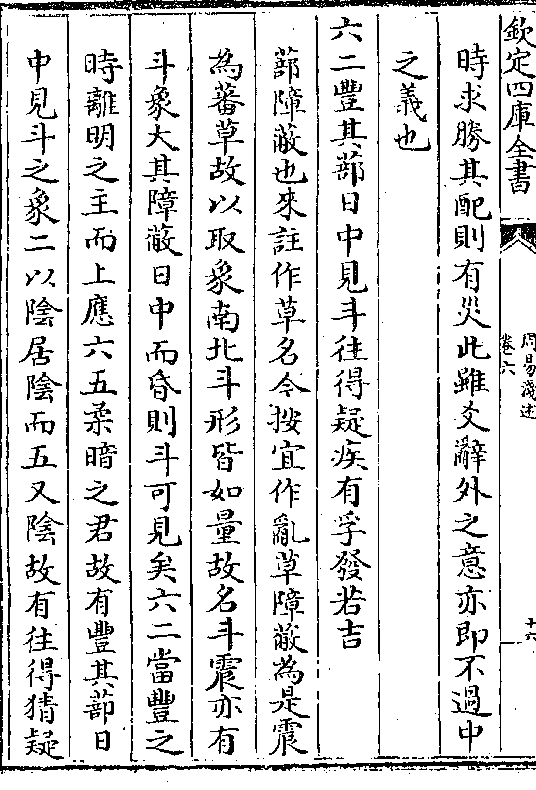 欽定四庫全書
周易淺述
卷六
十六
時求勝其配則有災此雖爻辭外之意亦即不過中
之義也
六二豐其蔀日中見斗往得疑疾有孚發若吉
蔀障蔽也來註作草名今按宜作亂草障蔽為是震
為蕃草故以取象南北斗形皆如量故名斗震亦有
斗象大其障蔽日中而昏則斗可見矣六二當豐之
時離明之主而上應六五柔暗之君故有豐其蔀日
中見斗之象二以陰居陰而五又陰故有往得猜疑